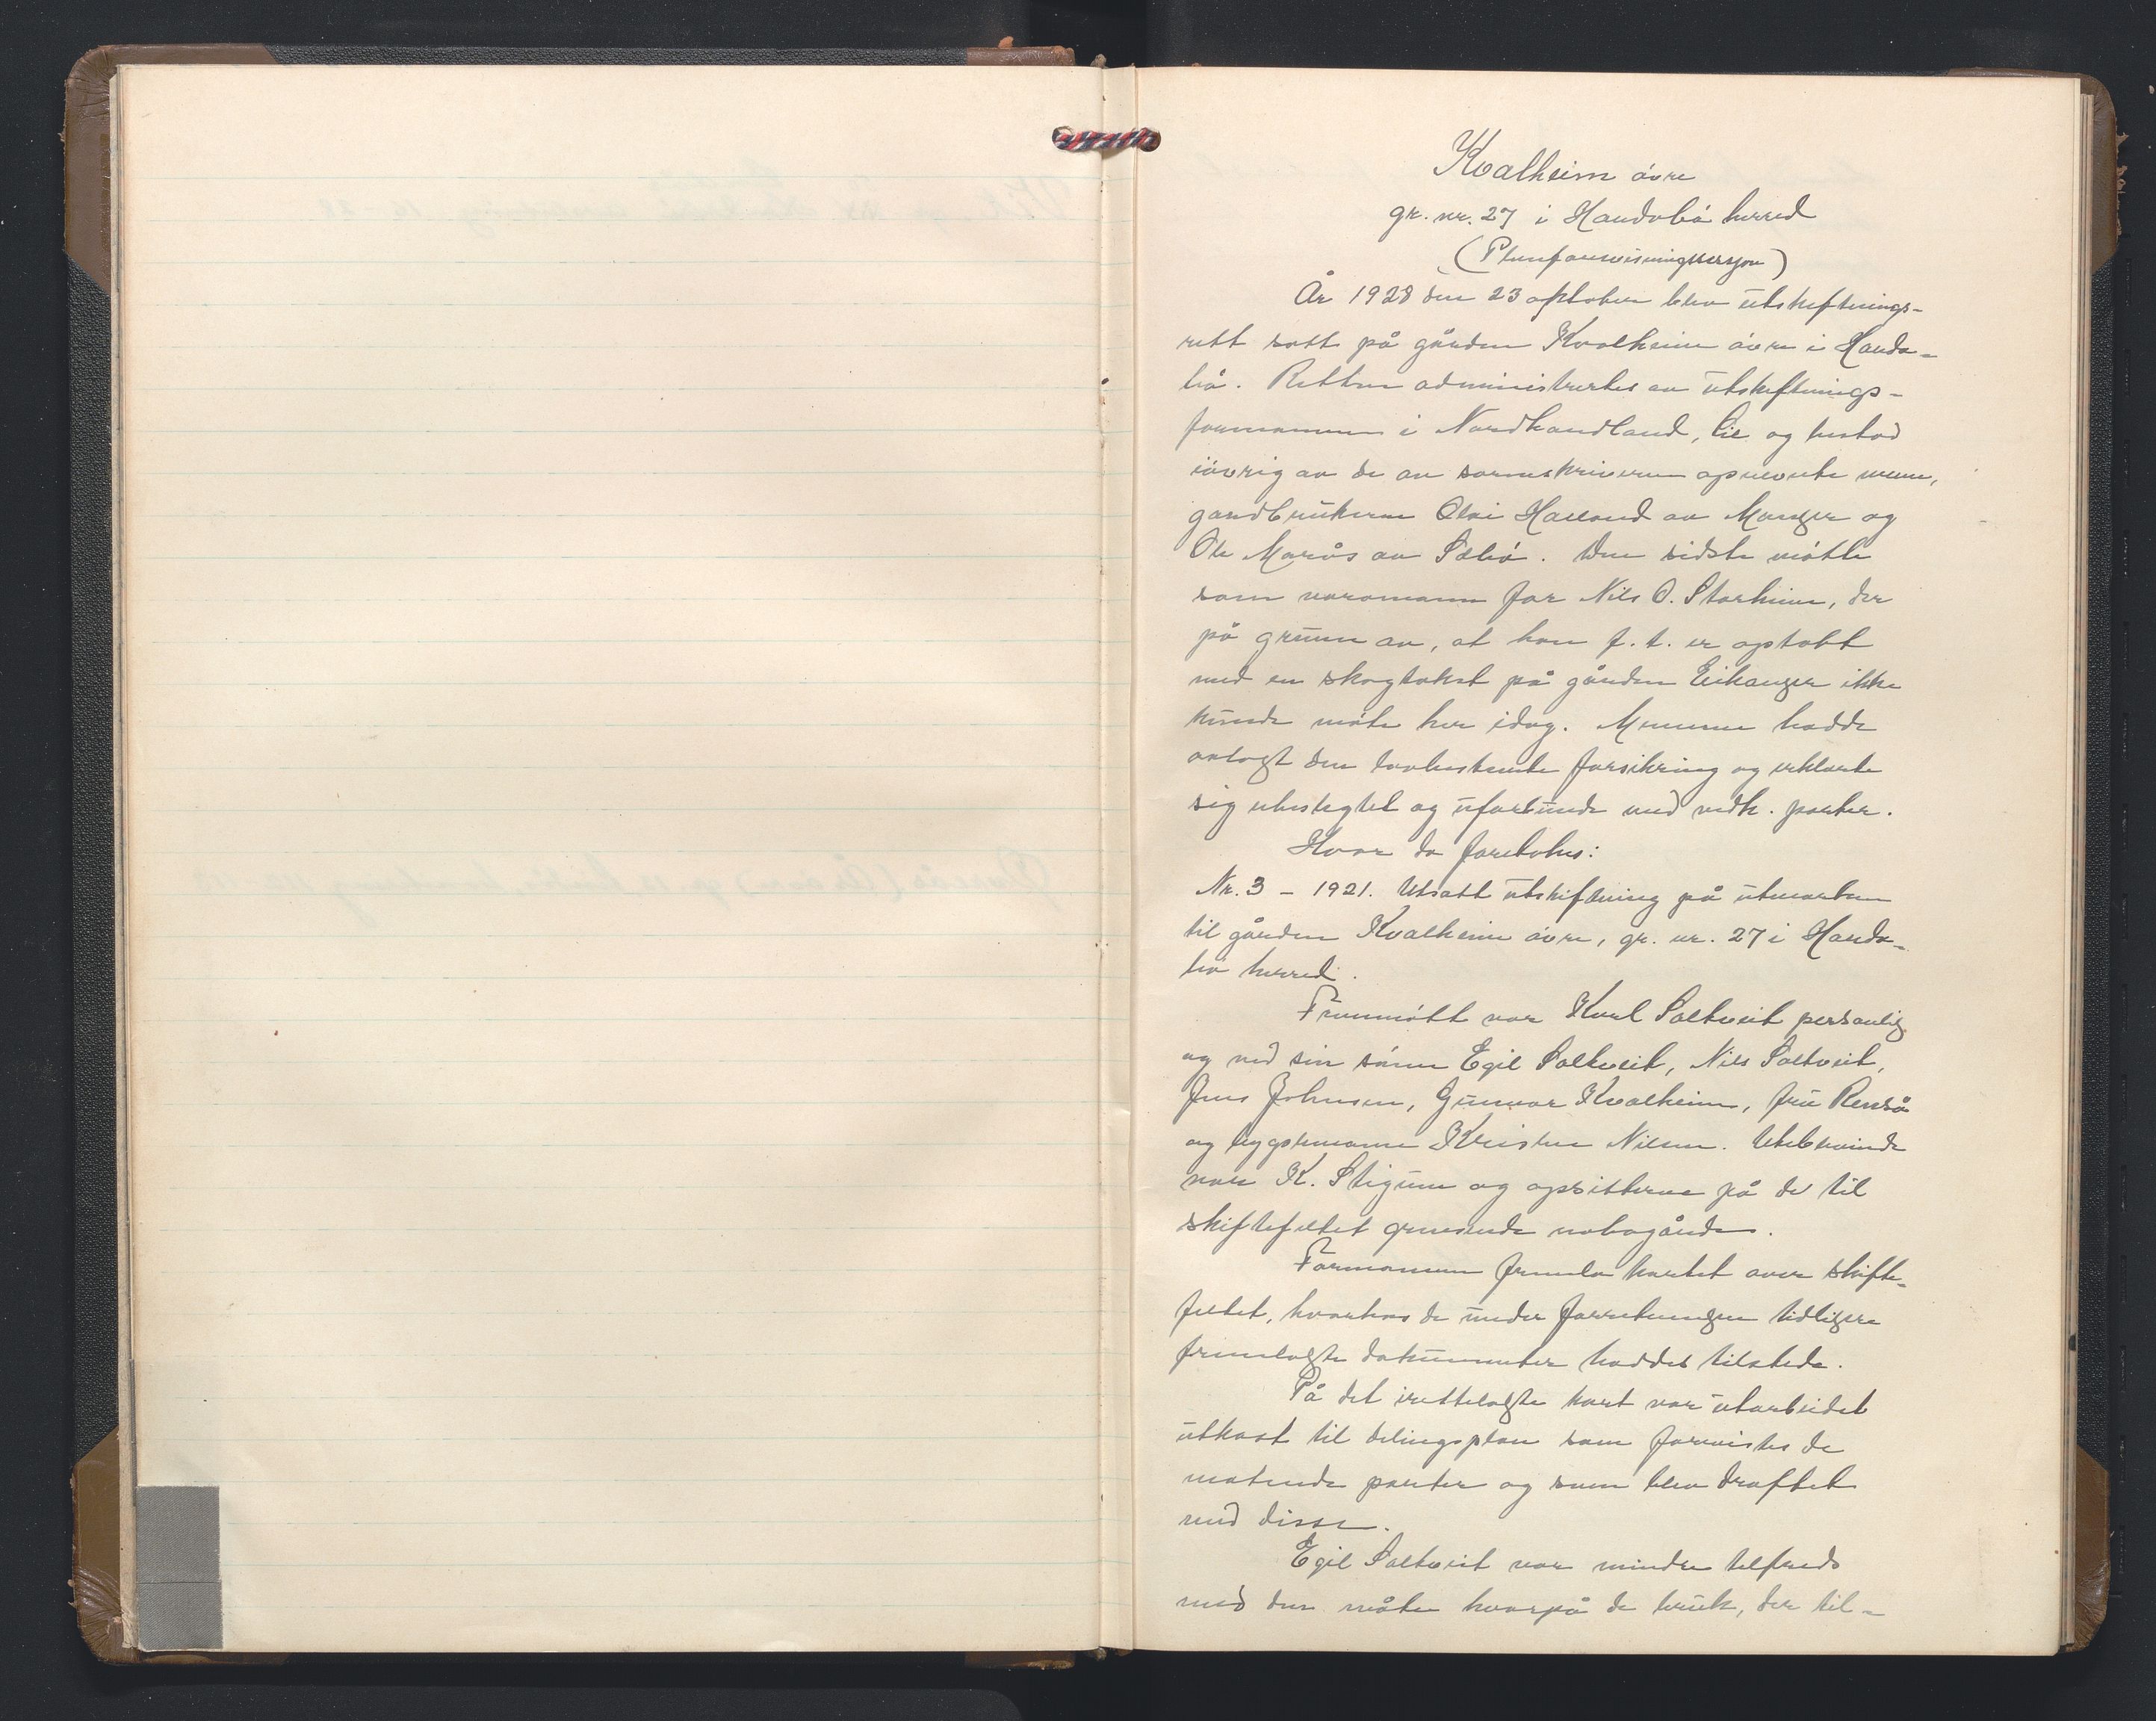 Kvalheim øvre
gr. nr. 27 i Haudsbø herred
(Planforevisningsversjon)
År 1928 den 23 oktober blev utskiftnings-
rett satt på gården Kvalheim øvre i Hands-
bø. Retten administrertes av utskiftnings-
formannen i Nordhordland, Lie og bestod
iøvrig av de av sorenskriveren opnevnte menn,
gardbrukerne Olai Halland av Manger og
Ole Marås av Sæbø. Den sidste møtte
som varamann for Nils O. Storheim, der
på grunn av, at han f. t. er optatt
med en skogtakst på gården Eikanger ikke
kunde møte her idag. Mennene hadde
avlagt den lovbestemte forsikring og erklærte
sig ubeslegtet og uforbunde med vedk. parter.
Hvor da foretokes:
Nr. 3 - 1921. Utsatt utskiftning på utmarken
til gården Kvalheim øvre, gr. nr. 27 i Hands-
bø herred.
Fremmøtt var Karl Saltveit personlig
og ved sin sønn Egil Saltveit, Nils Saltveit,
Jens Johnsen, Gunnar Kvalheim, fru
og bygstmann Kristen Nilsen. Uteblivende
var K. Stigum og opsitterne på de til
skiftefeltet grensende nabogårde.
Formannen fremla kartet over skifte-
feltet, hvorhos de under forretningen tidligere
fremlagte dokumenter haddes tilstede.
På det irettelagte kart var utarbeidet
utkast til delingsplan som forevistes de
møtende parter og som blev drøftet
med disse.
Egil Saltveit var mindre tilfreds
med den måte hvorpå de bruk, der til-